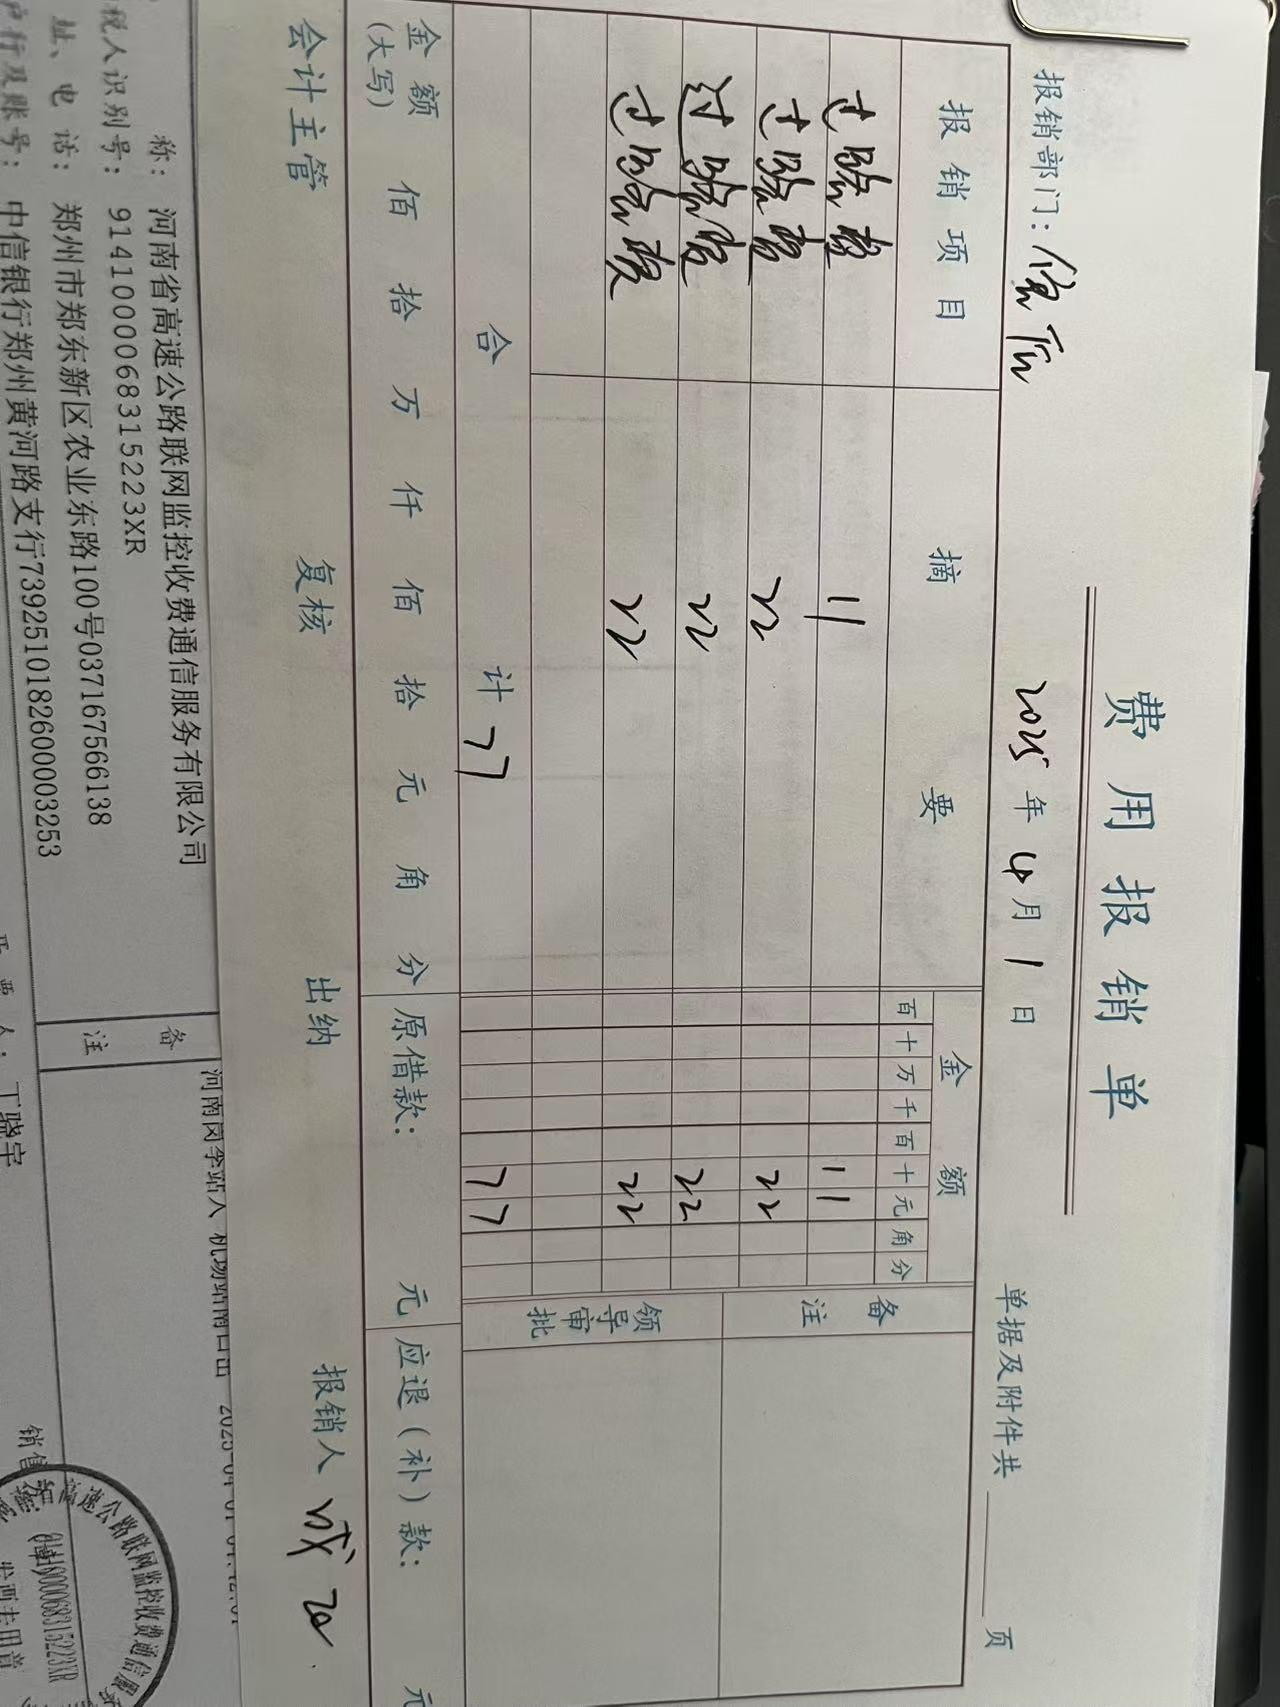 费用报销单
报销部门：
2025年4月1日
单据及附件共 页
报销项目 摘要 金额 备注
百十万千百十元角分
过路费 11 11
过路费 22 22
过路费 22 22
过路费 22 22
领导审批
合计 77 77
金额(大写) 佰拾万仟佰拾元角分 原借款： 元 应退(补)款： 元
会计主管 复核 出纳 报销人
河南岗李站入 机场站南口出
称：河南省高速公路联网监控收费通信服务有限公司
税人识别号：9141000068315223XR
址、电话：郑州市郑东新区农业东路100号037167566138
户行及账号：中信银行郑州黄河路支行7392510182600003253
备注
开票人：丁骁宇
销售
高速公路联网监控收费通信服
9141000068315223XR
发票专用章